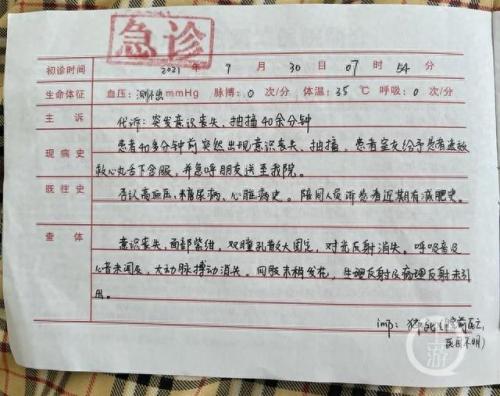 急诊
初诊时间 2021 年 9 月 30 日 07 时 54 分
生命体征 血压：测不出 mmHg 脉搏：0 次/分 体温：35 ℃ 呼吸：0 次/分
主诉 代诉：突发意识丧失、抽搐40余分钟
现病史 患者40多分钟前突然出现意识丧失、抽搐，患者室友给予患者速效
救心丸舌下含服，并急呼朋友送至我院。
既往史 否认高血压、糖尿病、心脏病史。陪同人员诉患者近期有减肥史。
查体 意识丧失，面部紫绀，双瞳孔散大固定，对光反射消失。呼吸音及
心音未闻及，大动脉搏动消失。四肢末梢发花，生理反射及病理反射未引
出。
imp：猝死（院前死亡，
原因不明）
上游